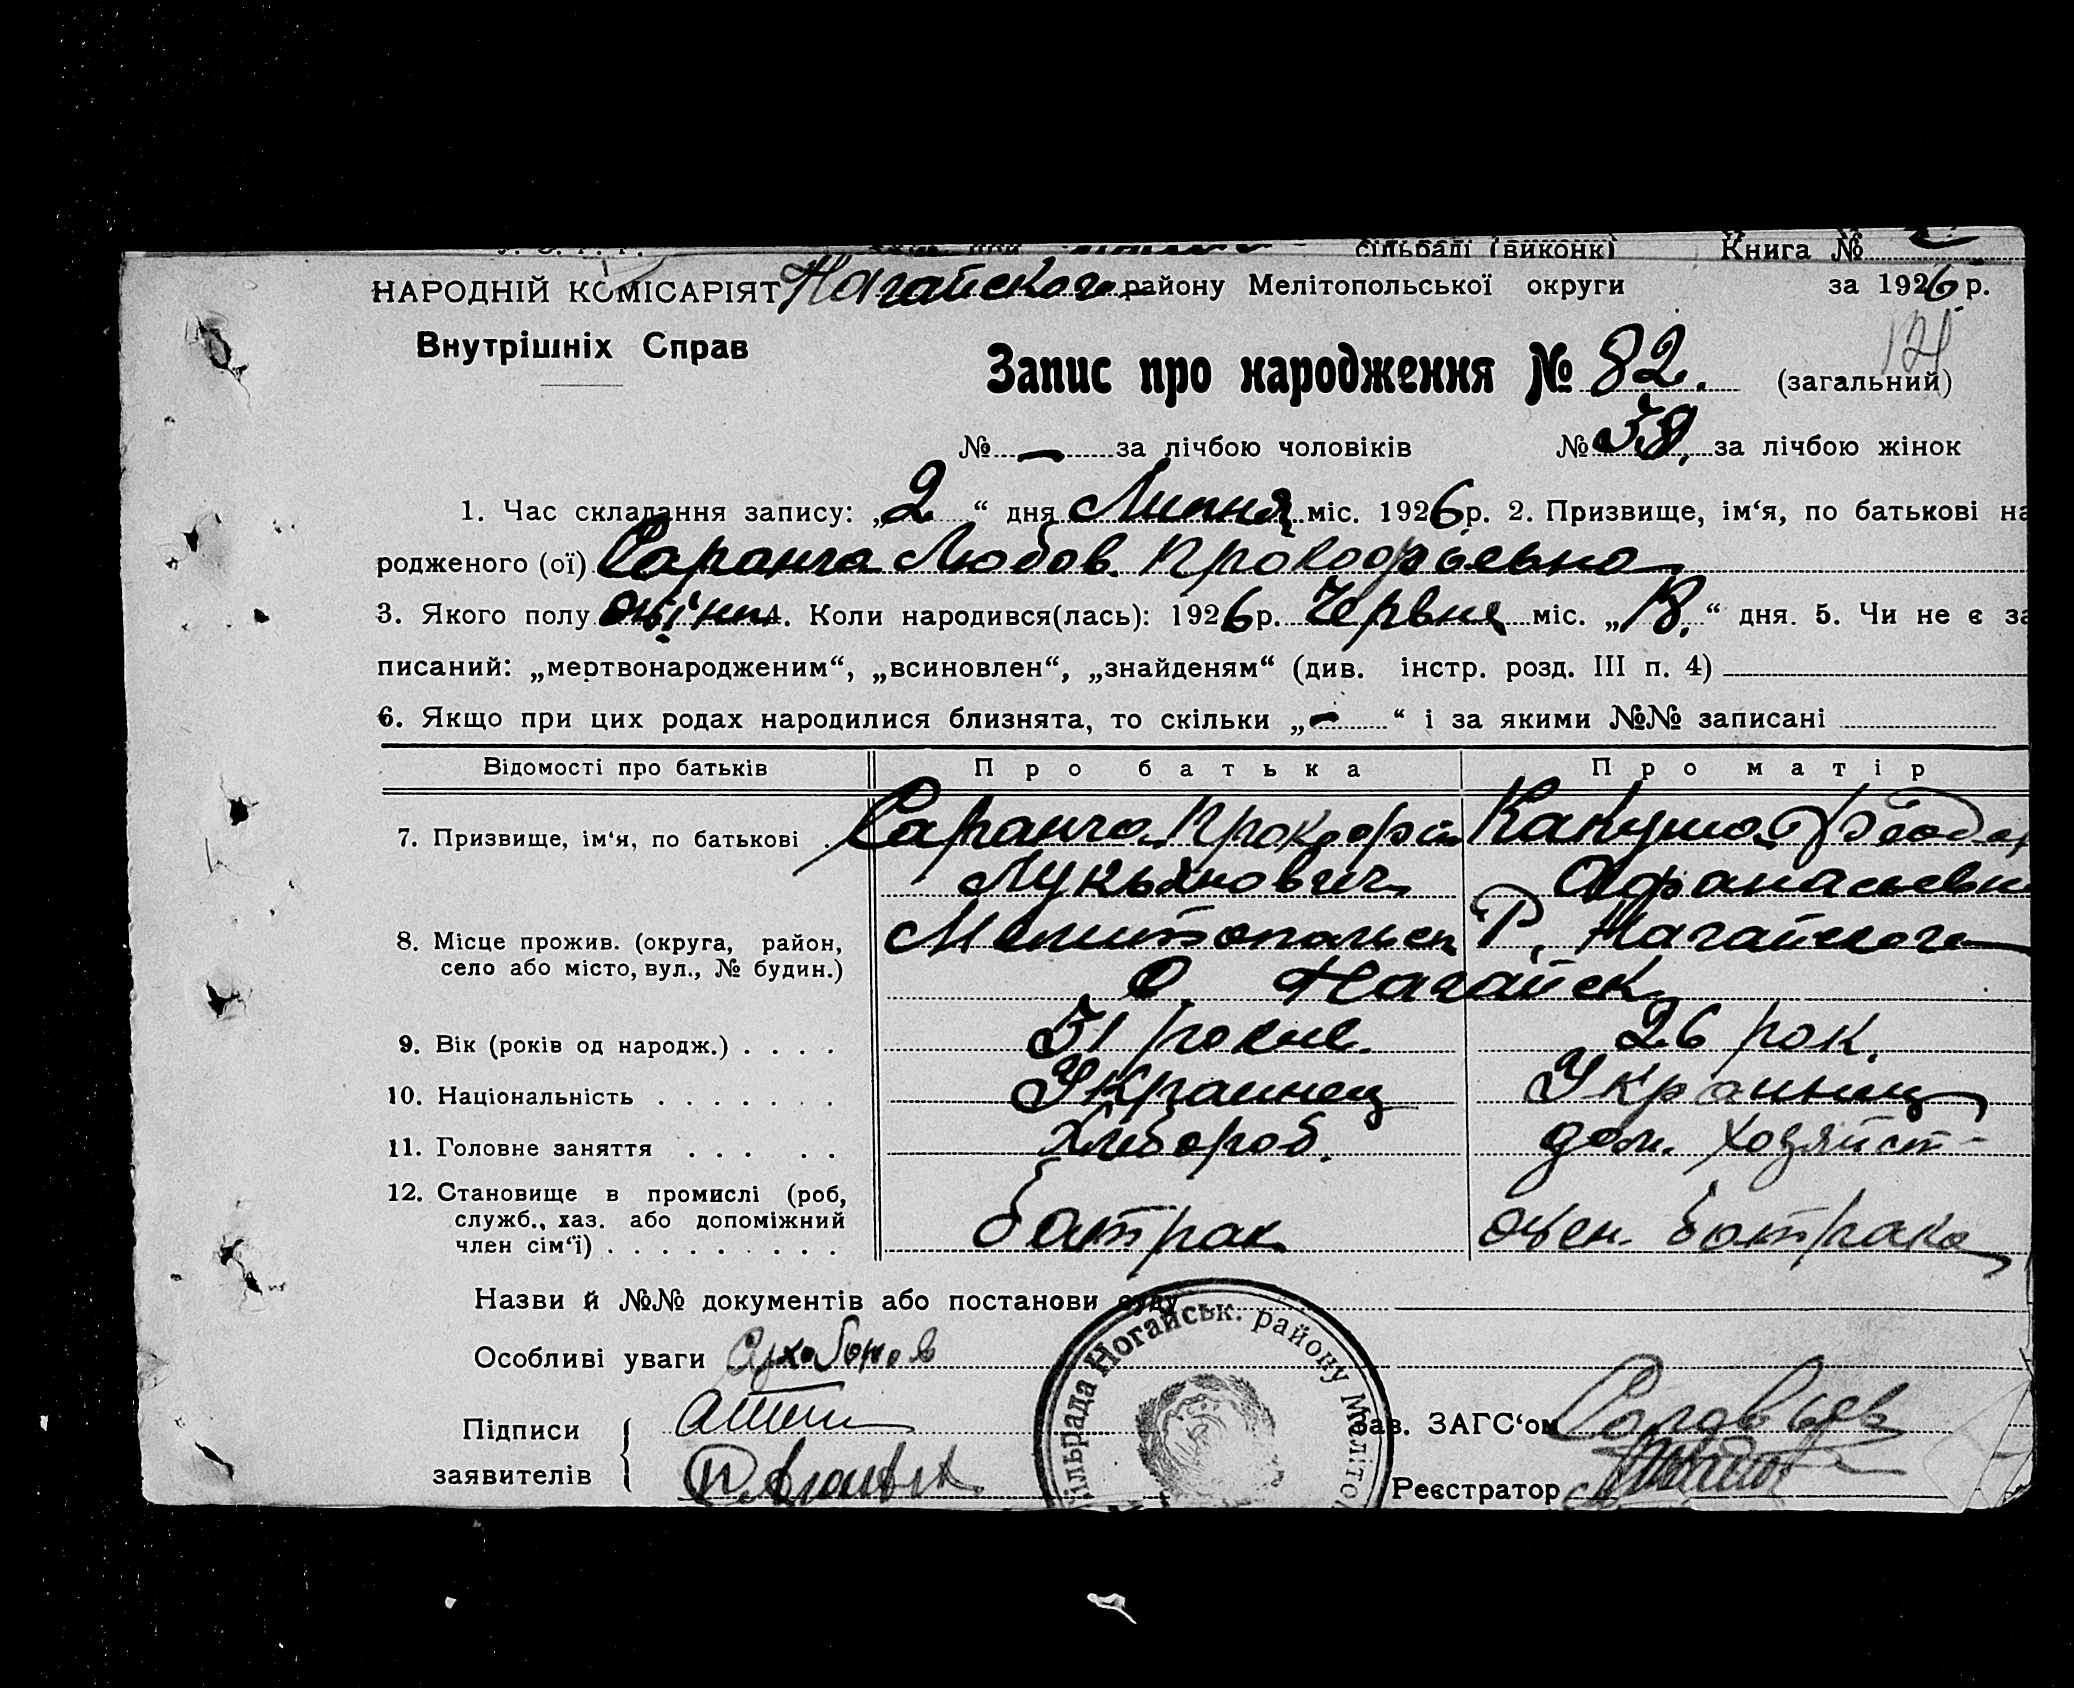 сільраді (виконк) Книга №
НАРОДНІЙ КОМІСАРІЯТ Нагайского району Мелітопольської округи за 1926 р.
Внутрішніх Справ
121
Запис про народження № 82. (загальний)
№ — за лічбою чоловіків № 38, за лічбою жінок
1. Час складання запису: „2“ дня Липня міс. 1926 р. 2. Призвище, ім‘я, по батькові на
родженого (ої) Саранча Любов Прокофьевна
3. Якого полу жіноч 4. Коли народився(лась): 1926 р. Червня міс. „18.“ дня. 5. Чи не є за
писаний: „мертвонародженим“, „всиновлен“, „знайденям“ (див. інстр. розд. III п. 4)
6. Якщо при цих родах народилися близнята, то скільки „-“ і за якими №№ записані
Відомості про батьків Про батька Про матір
7. Призвище, ім‘я, по батькові . Саранча Прокофій
Лукьянович Афанасьевн
8. Місце прожив. (округа, район, Мелитопольск Р. Нагайского
село або місто, вул., № будин.) С. Нагайск
9. Вік (років од народж.) . . . . 31 рокив. 26 рок.
10. Національність . . . . . . . Украинец Украинц
11. Головне заняття . . . . . Хлибороб. дом. хозяйст-
12. Становище в промислі (роб,
служб., хаз. або допоміжний батрак жен. батрака
член сім‘ї) . . . . . . . . .
Назви й №№ документів або постанови суду
Особливі уваги
Підписи
заявителів
Зав. ЗАГС‘ом Соловьев
Реєстратор
ільрада Ногайськ. району Меліто